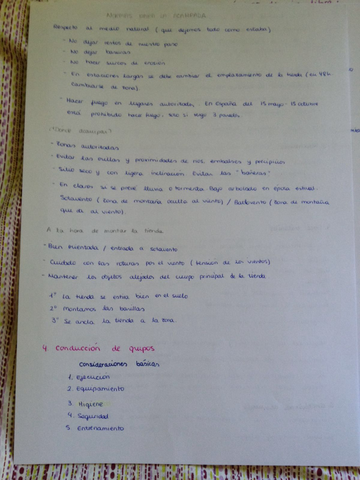 Respeto al medio natural (que dejamos todo como estaba)
- No dejar restos de nuestro paso
- No dejar basuras
- No hacer
- En estaciones largas se debe cambiar el emplazamiento de la tienda
cambiarse de zona)
- Hacer fuego en lugares autorizados, En España del 15 mayo - 15 octubre
está prohibido hacer fuego.
¿Dónde acampar?
- Zonas autorizadas
- Evitar las orillas y proximidades de ríos, embalses y
- Sitio seco y con ligera inclinación. Evitar las "bañeras"
- En claros si se prevé lluvia o tormenta. Bajo arbolado en época estival.
- Sotavento (zona de montaña oculta al viento) / Barlovento (zona de montaña
que da al viento).
A la hora de montar la tienda
- Bien orientada / entrada a sotavento
- Cuidado con las roturas por el viento (tensión de los vientos)
- Mantener los objetos alejados del cuerpo principal de la tienda
1º La tienda se estira bien en el suelo
2º Montamos las varillas
3º Se ancla la tienda a la zona
4. Conducción de grupos
Consideraciones básicas
1. Ejecución
2. Equipamiento
3. Higiene
4. Seguridad
5. Entrenamiento